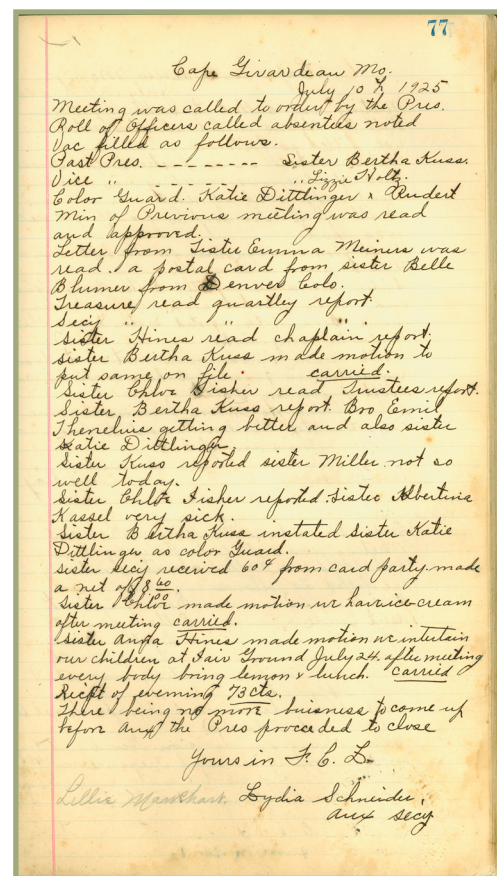 77
Cape Girardeau Mo.
July 10th 1925
Meeting was called to order by the Pres.
Roll of Officers called absenties noted
Vac filled as follows.
Past Pres. - - - - - - - - - Sister Bertha Kuss.
Vice " - - - - - - - - - " Lizzie Holtz.
Color Guard. Katie Dittlinger & Rudert
Min of Previous meeting was read
and approved.
Letter from Sister Emma Meiners was
read. a postal card from sister Belle
Blumer from Denver Colo.
Treasure read quartley report.
Secy " " "
Sister Hines read chaplain report.
Sister Bertha Kuss made motion to
put same on file. carried.
Sister Chloe Fisher read Trustees report.
Sister Bertha Kuss report. Bro Emil
Thenelius getting better and also sister
Katie Dittlinger.
Sister Kuss reported sister Miller not so
well today.
Sister Chloe Fisher reported Sister Albertina
Kassel very sick.
Sister Bertha Kuss instated Sister Katie
Dittlinger as color Guard.
Sister Secy received 60¢ from card party. made
a net of $8 60/100.
Sister Chloe made motion we have ice-cream
after meeting carried.
Sister Anna Hines made motion we intertain
our children at Fair Ground July 24. after meeting
every body bring lemon & lunch. carried
Recipt of evening 73cts.
There being no more buisness to come up
before Aux the Pres proceeded to close
Yours in F. C. L.
Lellie Markhart. Lydia Schneider,
Aux Secy